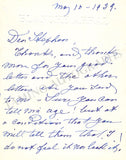 May 10 - 1939.
Dear Stephen
Thanks, and thanks
more for your good
letter and the other
letter who you send
to me. Sure you can
tell me age! but at
condition that you
will tell them that I
do not feel it no look it,